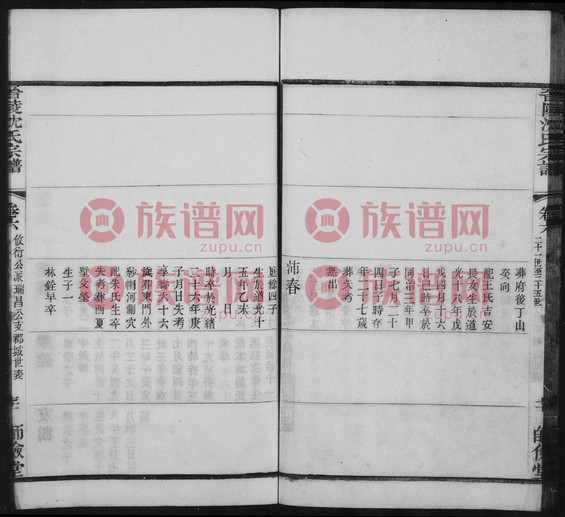 晉陵沈氏宗譜
卷六
二十一世至二十五世
師儉堂
葬府後丁山
癸向
配王氏吉安
長女生於道
光十八年戊
戌四月十六
日巳時卒於
同治三年甲
子七月二十
四日子時存
年二十七歲
葬失考
無出
沛春
生於道光十
五年乙未
月 日
時卒於光緒
二十六年庚
子月日失考
卒齡六十六
歲葬東門外
配朱氏生卒
失考葬西夏
墅文瑩
生子一
林銓早卒
晉陵沈氏宗譜
卷六
師儉堂
族谱网
zupu.cn
族谱网
zupu.cn
族谱网
zupu.cn
族谱网
zupu.cn